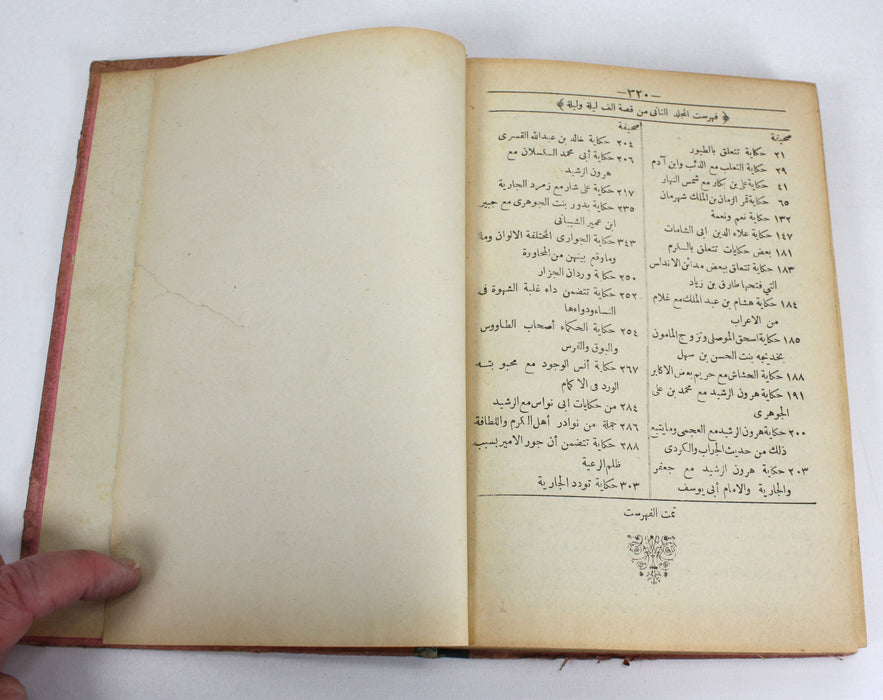 —٣٢٠—
﴿ فهرست المجلد الثانى من قصة الف ليلة وليلة ﴾
صحيفة
٢١ حكاية تتعلق بالطيور
٢٩ حكاية الثعلب مع الذئب وابن آدم
٤١ حكاية على بن بكار مع شمس النهار
٦٥ حكاية قمر الزمان بن الملك شهرمان
١٣٢ حكاية نعم ونعمة
١٤٧ حكاية علاء الدين ابى الشامات
١٨١ بعض حكايات تتعلق بالكرم
١٨٣ حكاية تتعلق ببعض مدائن الاندلس
التى فتحها طارق بن زياد
١٨٤ حكاية هشام بن عبد الملك مع غلام
من الاعراب
١٨٥ حكاية اسحق الموصلى وتزوج المامون
بخديجه بنت الحسن بن سهل
١٨٨ حكاية الحشاش مع حريم بعض الاكابر
١٩١ حكاية هرون الرشيد مع محمد بن على
الجوهرى
٢٠٠ حكاية هرون الرشيد مع العجمى وما يتبع
ذلك من حديث الجراب والكردى
٢٠٣ حكاية هرون الرشيد مع جعفر
والجارية والامام أبى يوسف
صحيفة
٢٠٤ حكاية خالد بن عبدالله القسرى
٢٠٦ حكاية أبى محمد الكسلان مع
هرون الرشيد
٢١٧ حكاية على شار مع زمرد الجارية
٢٣٥ حكاية بدور بنت الجوهرى مع جبير
ابن عمير الشيبانى
٣٤٣ حكاية الجوارى المختلفة الالوان وما
وماوقع بينهن من المحاورة
٢٥٠ حكاية وردان الجزار
٢٥٢ حكاية تتضمن داء غلبة الشهوة فى
النساء ودواءها
٢٥٤ حكاية الحكماء أصحاب الطاووس
والبوق والفرس
٢٦٧ حكاية أنس الوجود مع محبوبته
الورد فى الاكمام
٢٨٤ من حكايات ابى نواس مع الرشيد
٢٨٦ جملة من نوادر أهل الكرم واللطافة
٢٨٨ حكاية تتضمن أن جور الامير بسبب
ظلم الرعية
٣٠٣ حكاية تودد الجارية
تمت الفهرست